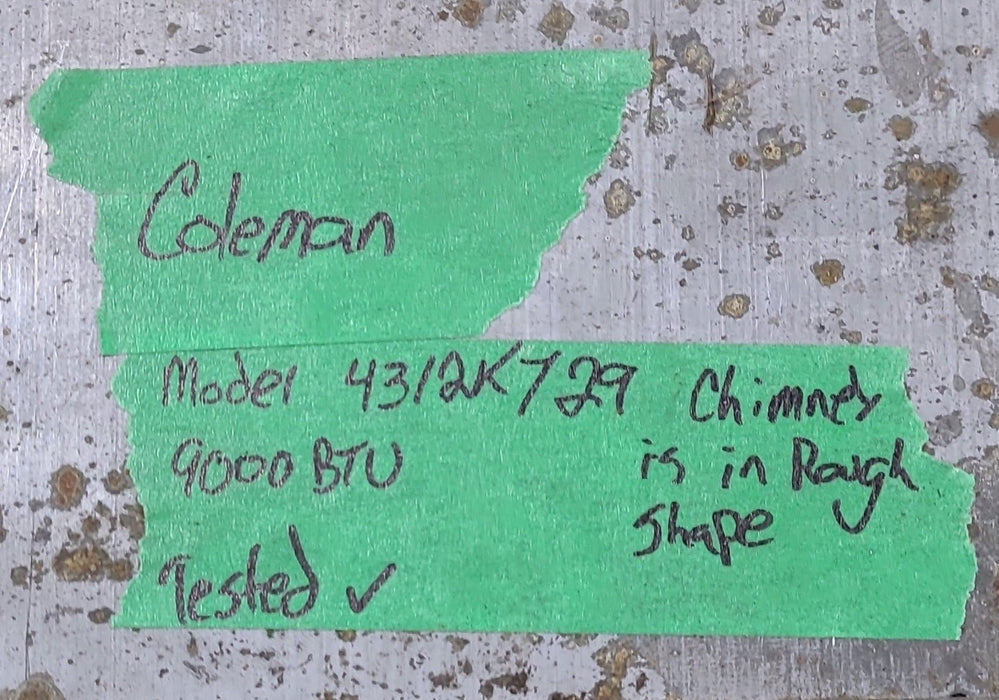 Coleman
Model 4312K729
9000 BTU
Tested ✓
Chimney
is in Rough
Shape